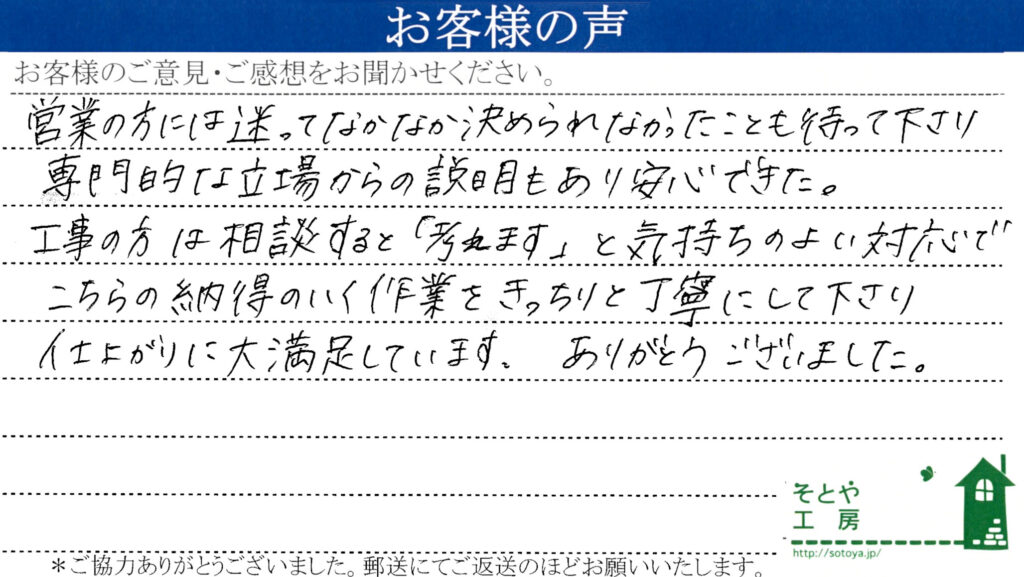 お客様の声
お客様のご意見・ご感想をお聞かせください。
営業の方には迷ってなかなか決められなかったことも待って下さり
専門的な立場からの説明もあり安心できた。
工事の方は相談すると「考れます」と気持ちのよい対応で
こちらの納得のいく作業をきっちりと丁寧にして下さり
仕上がりに大満足しています。 ありがとうございました。
そとや
工房
http://sotoya.jp/
＊ご協力ありがとうございました。郵送にてご返送のほどお願いいたします。